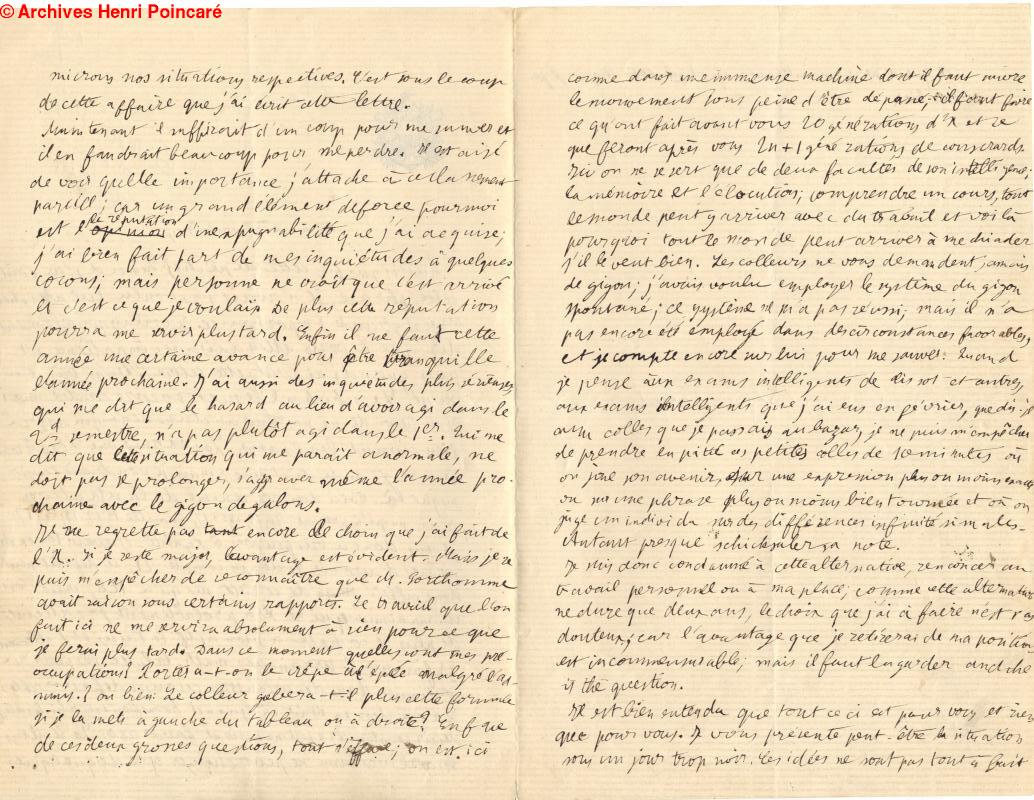 © Archives Henri Poincaré
microns nos situations respectives. C'est sous le coup
de cette affaire que j'ai écrit cette lettre.
Maintenant il suffirait d'un coup pour me sauver et
il en faudrait beaucoup pour me perdre. Il est aisé
de voir quelle importance j'attache à ce classement
partiel; car un grand élément de force pour moi
est la réputation d'inexpugnabilité que j'ai acquise;
j'ai bien fait part de mes inquiétudes à quelques
cocons; mais personne ne croit que c'est arrivé
et c'est ce que je voulais. De plus cette réputation
pourra me servir plus tard. Enfin il me faut cette
année une certaine avance pour être tranquille
l'année prochaine. J'ai aussi des inquiétudes plus sérieuses,
qui me dit que le hasard au lieu d'avoir agi dans le
2d semestre, n'a pas plutôt agi dans le 1er. Qui me
dit que cette situation qui me paraît anormale, ne
doit pas se prolonger, s'aggraver même l'année pro-
chaine avec le gigon de galons.
Je ne regrette pas tant encore le choix que j'ai fait de
l'X. Si je reste major, l'avantage est évident. Mais je ne
puis m'empêcher de reconnaître que M. Forthomme
avait raison sous certains rapports. Le travail que l'on
fait ici ne me servira absolument à rien pour ce que
je ferai plus tard. Dans ce moment quelles sont mes pré-
occupations? Portera-t-on le crêpe à l'épée malgré l'as-
; ou bien: Le colleur gobera-t-il plus cette formule
si je la mets à gauche du tableau ou à droite? En f que
de ces deux grosses questions, tout s'efface; on est ici
comme dans une immense machine dont il faut suivre
le mouvement sous peine d'être dépassé; il faut faire
ce qu'ont fait avant vous 20 générations d'X et ce
que feront après vous 2n+1 générations de conscrards.
Ici on ne se sert que de deux facultés de son intelligence;
la mémoire et l'élocution; comprendre un cours, tout
le monde peut y arriver avec du travail et voilà
pourquoi tout le monde peut arriver à me chiader
s'il le veut bien. Les colleurs ne vous demandent jamais
de gigon; j'avais voulu employer le système du gigon
spontané; ce système ne m'a pas réussi; mais il n'a
pas encore été employé dans des circonstances favorables,
et je compte encore sur lui pour me sauver. Quand
je pense aux exams intelligents de Tissot et autres,
aux exams intelligents que j'ai eus en février, que dis-je
aux colles que je passais au bazar, je ne puis m'empêcher
de prendre en pitié ces petites colles de 10 minutes où
on joue son avenir, sur une expression plus ou moins exacte
ou sur une phrase plus ou moins bien tournée et où on
juge un individu sur des différences infinitésimales.
Autant presque schicksaler sa note.
Je suis donc condamné à cette alternative, renoncer au
travail personnel ou à ma place; comme cette alternative
ne dure que deux ans, le choix que j'ai à faire n'est pas
douteux; car l'avantage que je retirerai de ma position
est incommensurable; mais il faut la garder and che
is the question.
Il est bien entendu que tout ce ci est pour vous et rien
que pour vous. Je vous présente peut-être la situation
sous un jour trop noir. Les idées ne sont pas tout à fait